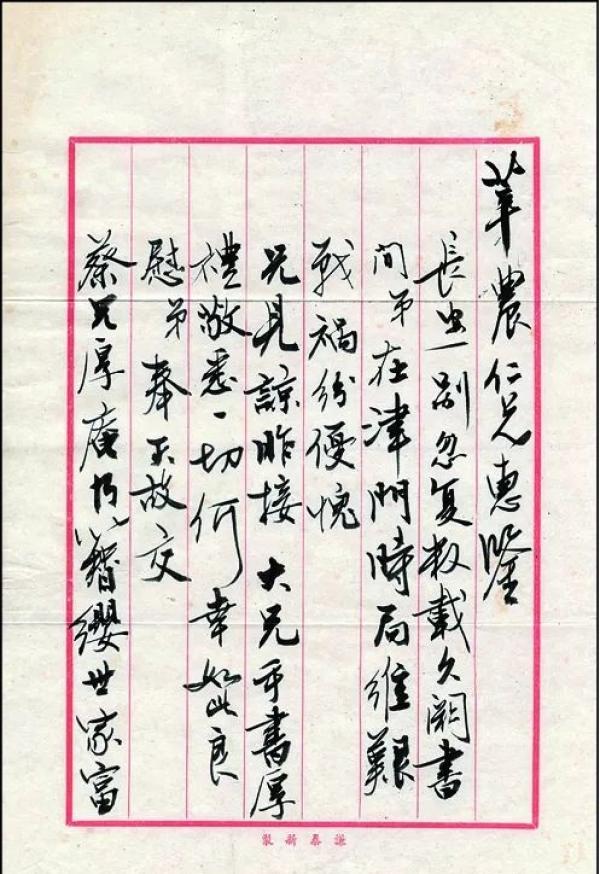 華農仁兄惠鑒
長忠一别忽复数載久闕書
間弟在津門時局維艱
戰禍纷優愧
兄見諒昨接大兄手書厚
禮敬悉一切何幸如此良
慰弟奉天故交
蔡兄厚庵乃簪纓世家富
謙泰新製